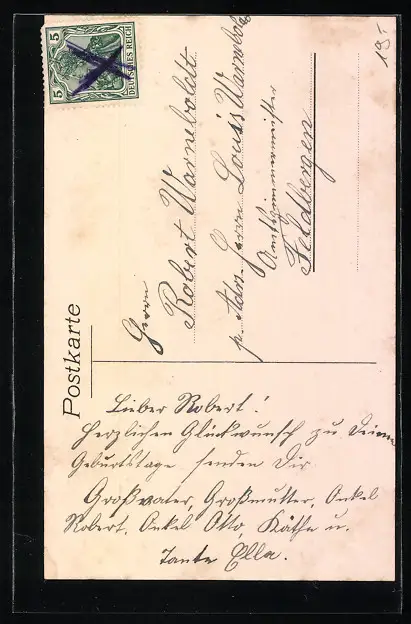 5
5
DEUTSCHES REICH
19.-
Postkarte
Herrn
Robert Warneboldt
p. Adr. Herrn Louis Warneboldt
Amtszimmermeister
Feldbergen
Lieber Robert!
Herzlichen Glückwunsch zu Deinem
Geburtstage senden Dir
Großvater, Großmutter, Onkel
Robert, Onkel Otto, Käthe u.
Tante Ella.